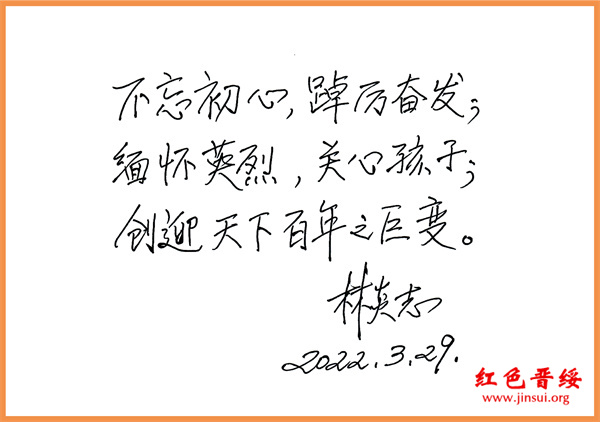 不忘初心，踔厉奋发；
缅怀英烈，关心孩子；
创迎天下百年之巨变。
林炎志
2022.3.29.
红色晋绥
www.jinsui.org